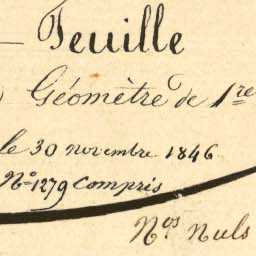 Feuille
Géomètre de 1re
le 30 novembre 1846
No 1279 compris
Nos Nuls